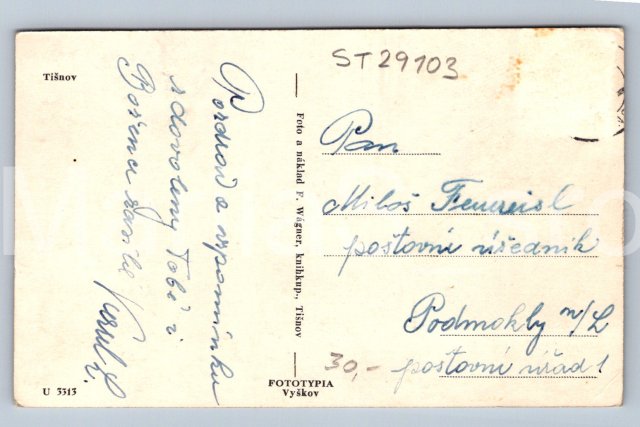 ST29103
Tišnov
Pozdrav a vzpomínku
s dovolenou Tobě i
Božence zasílá
Foto a náklad F. Wágner, knihkup., Tišnov
Pan
Miloš Feuereisl
poštovní úředník
Podmokly n/L
poštovní úřad 1
30,-
U 3313
FOTOTYPIA
Vyškov